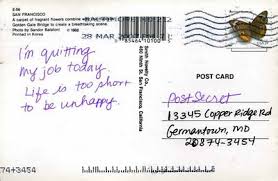 E-56
SAN FRANCISCO
A carpet of fragrant flowers combine with
Golden Gate Bridge to create a breathtaking scene.
Photo by Sandor Balatoni © 1988
Printed in Korea
28 MAR
9 85464 10100
Smith Novelty Co.
460 Ninth St. San Francisco, California
I'm quitting
my job today.
Life is too short
to be unhappy.
POST CARD
PostSecret
13345 Copper Ridge Rd
Germantown, MD
20874-3454
74+3454